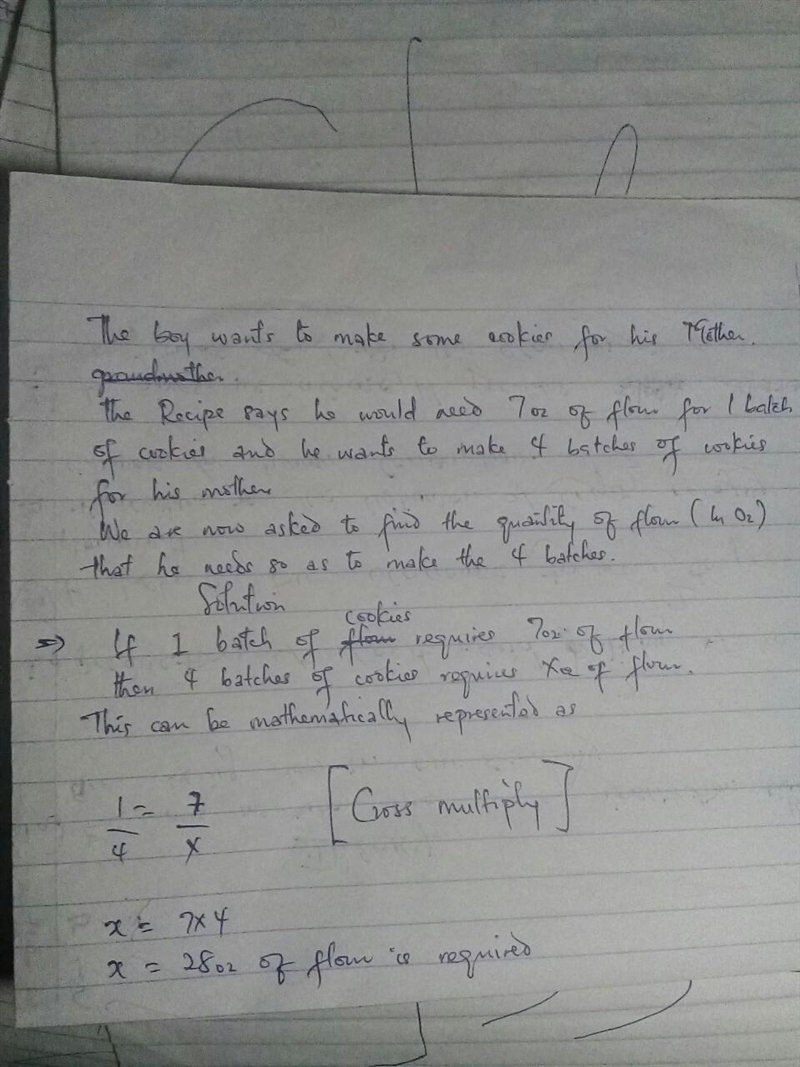 The boy wants to make some cookies for his Mother.
grandmother.
The Recipe says he would need 7oz of flour for 1 batch
of cookies and he wants to make 4 batches of cookies
for his mother
We are now asked to find the quantity of flour (In Oz)
that he needs so as to make the 4 batches.
Solution
cookies
=> If 1 batch of flour requires 7oz of flour
then 4 batches of cookies requires Xoz of flour.
This can be mathematically represented as
1/4 = 7/X [Cross multiply]
x = 7x4
x = 28oz of flour is required